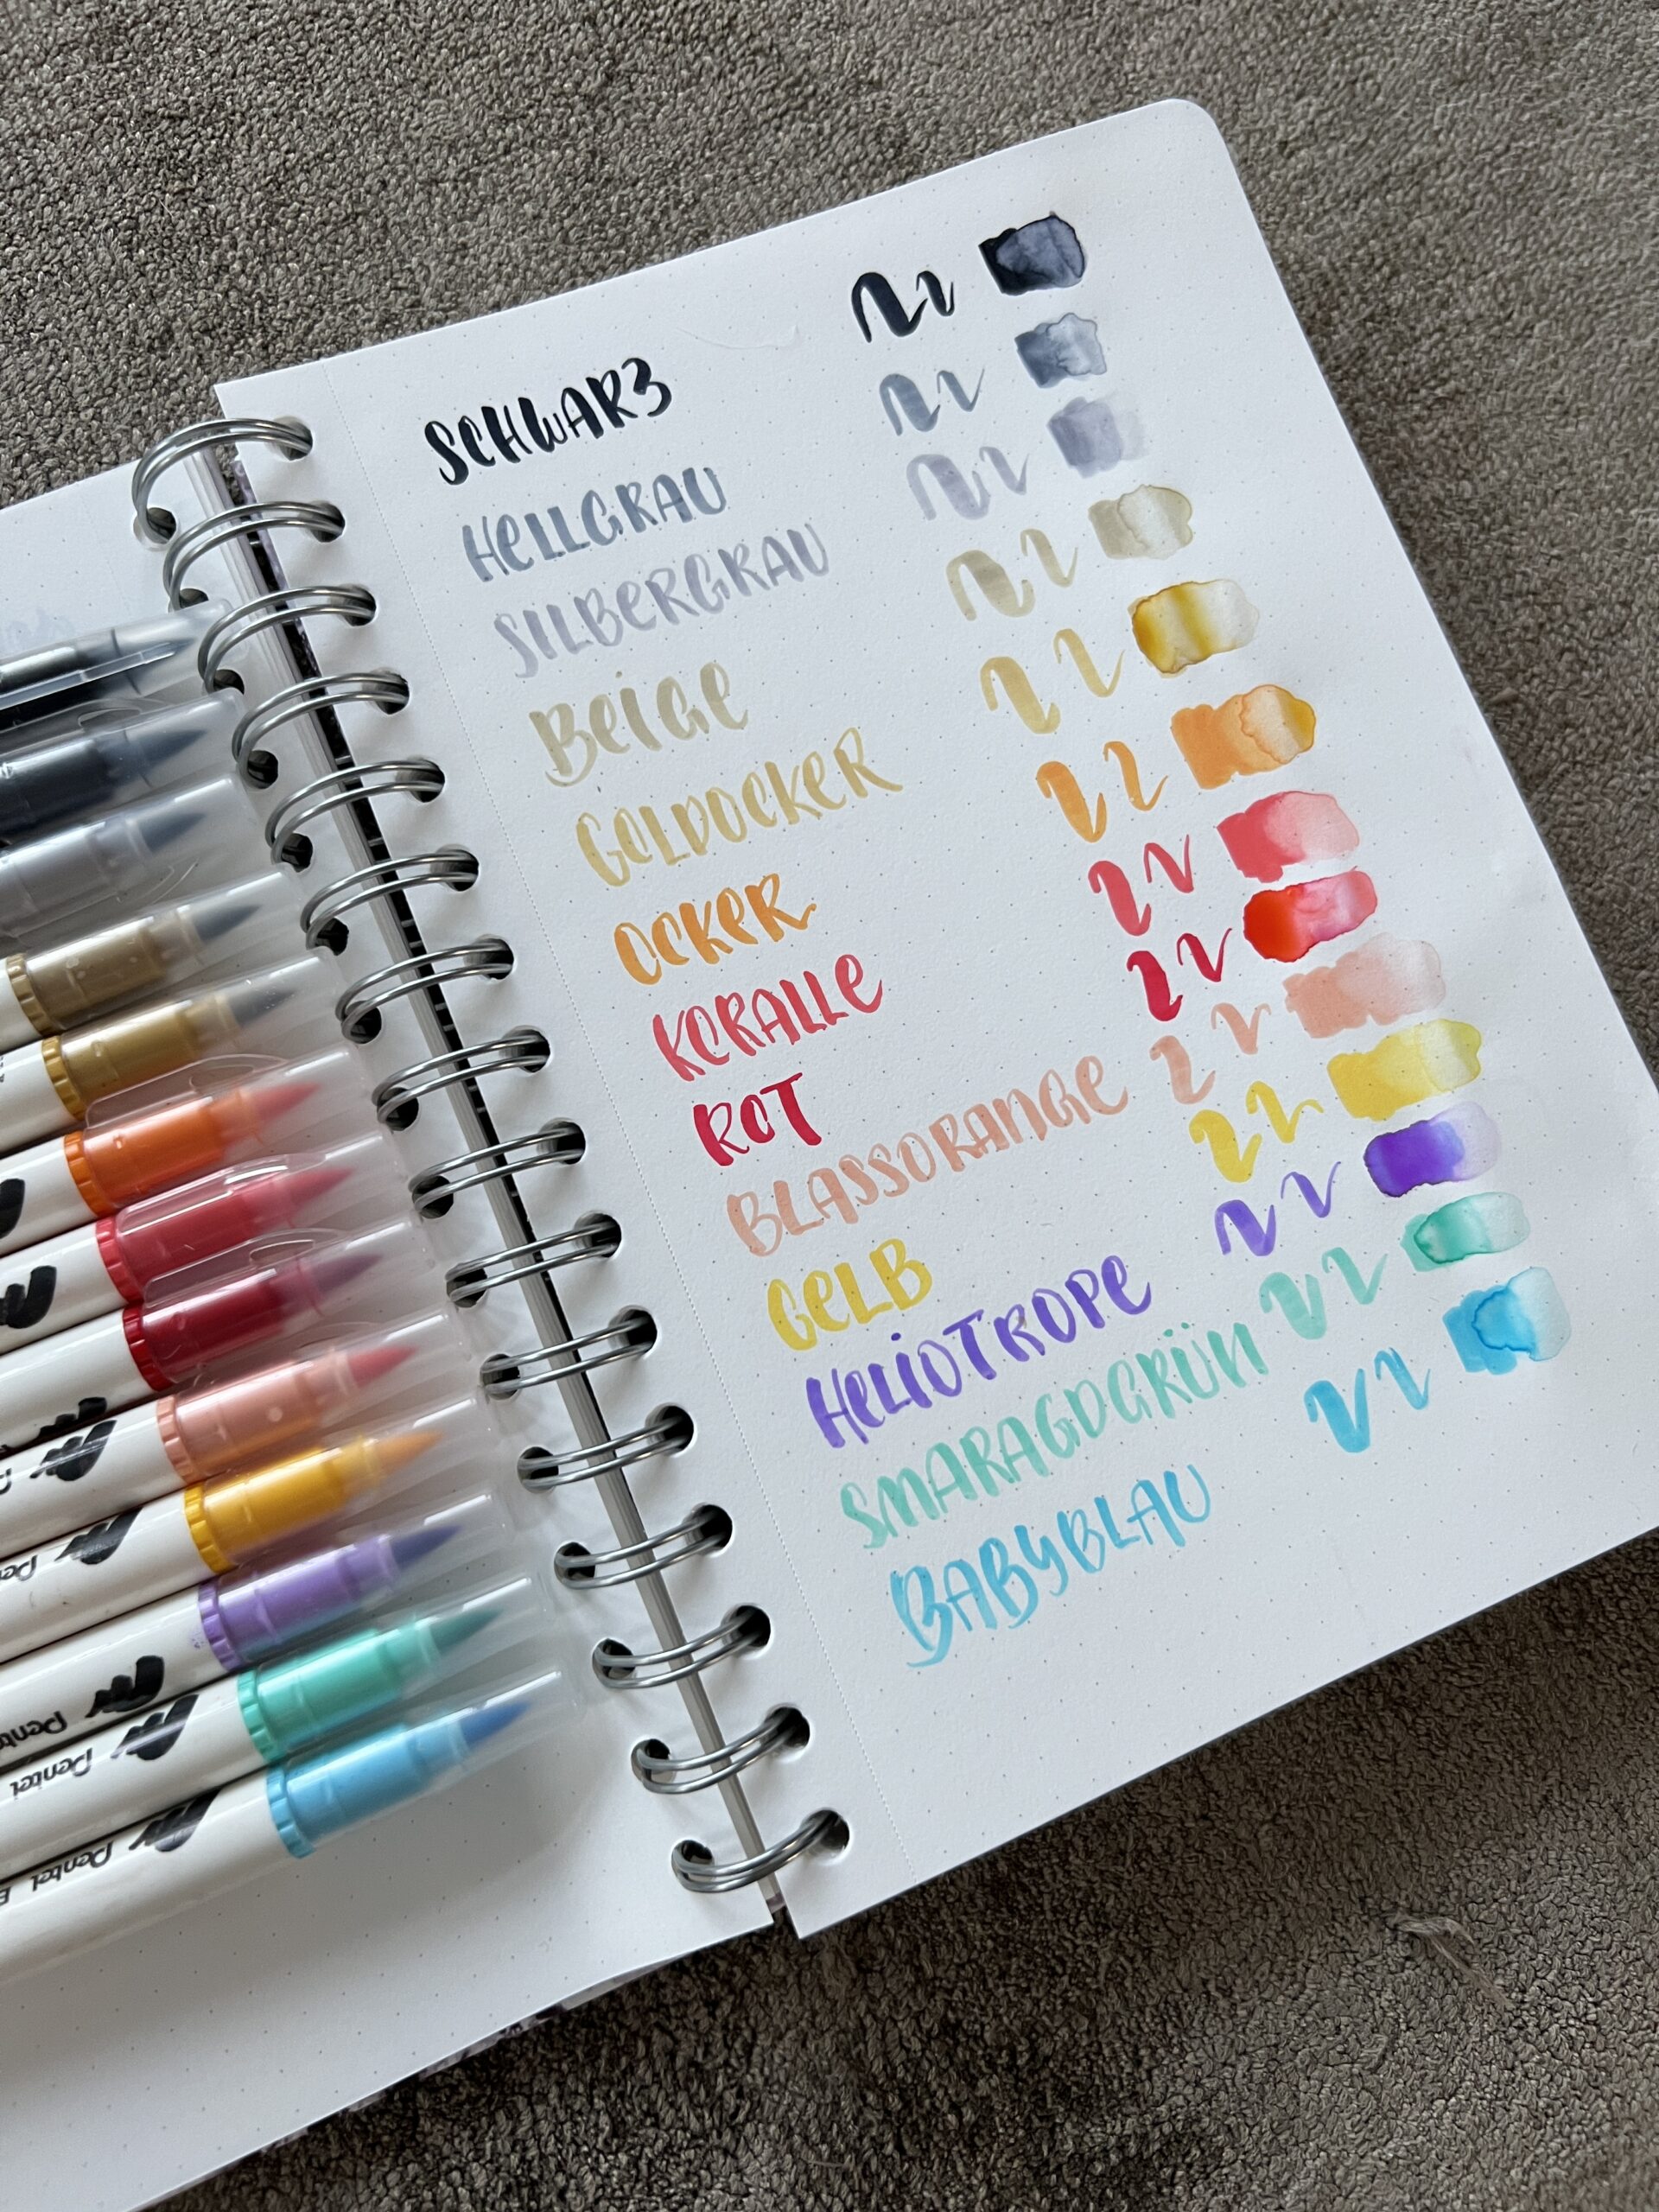 SCHWARZ
HELLGRAU
SILBERGRAU
BEIGE
GOLDOCKER
OCKER
KORALLE
ROT
BLASSORANGE
GELB
HELIOTROPE
SMARAGDGRÜN
BABYBLAU
Pentel
Pentel